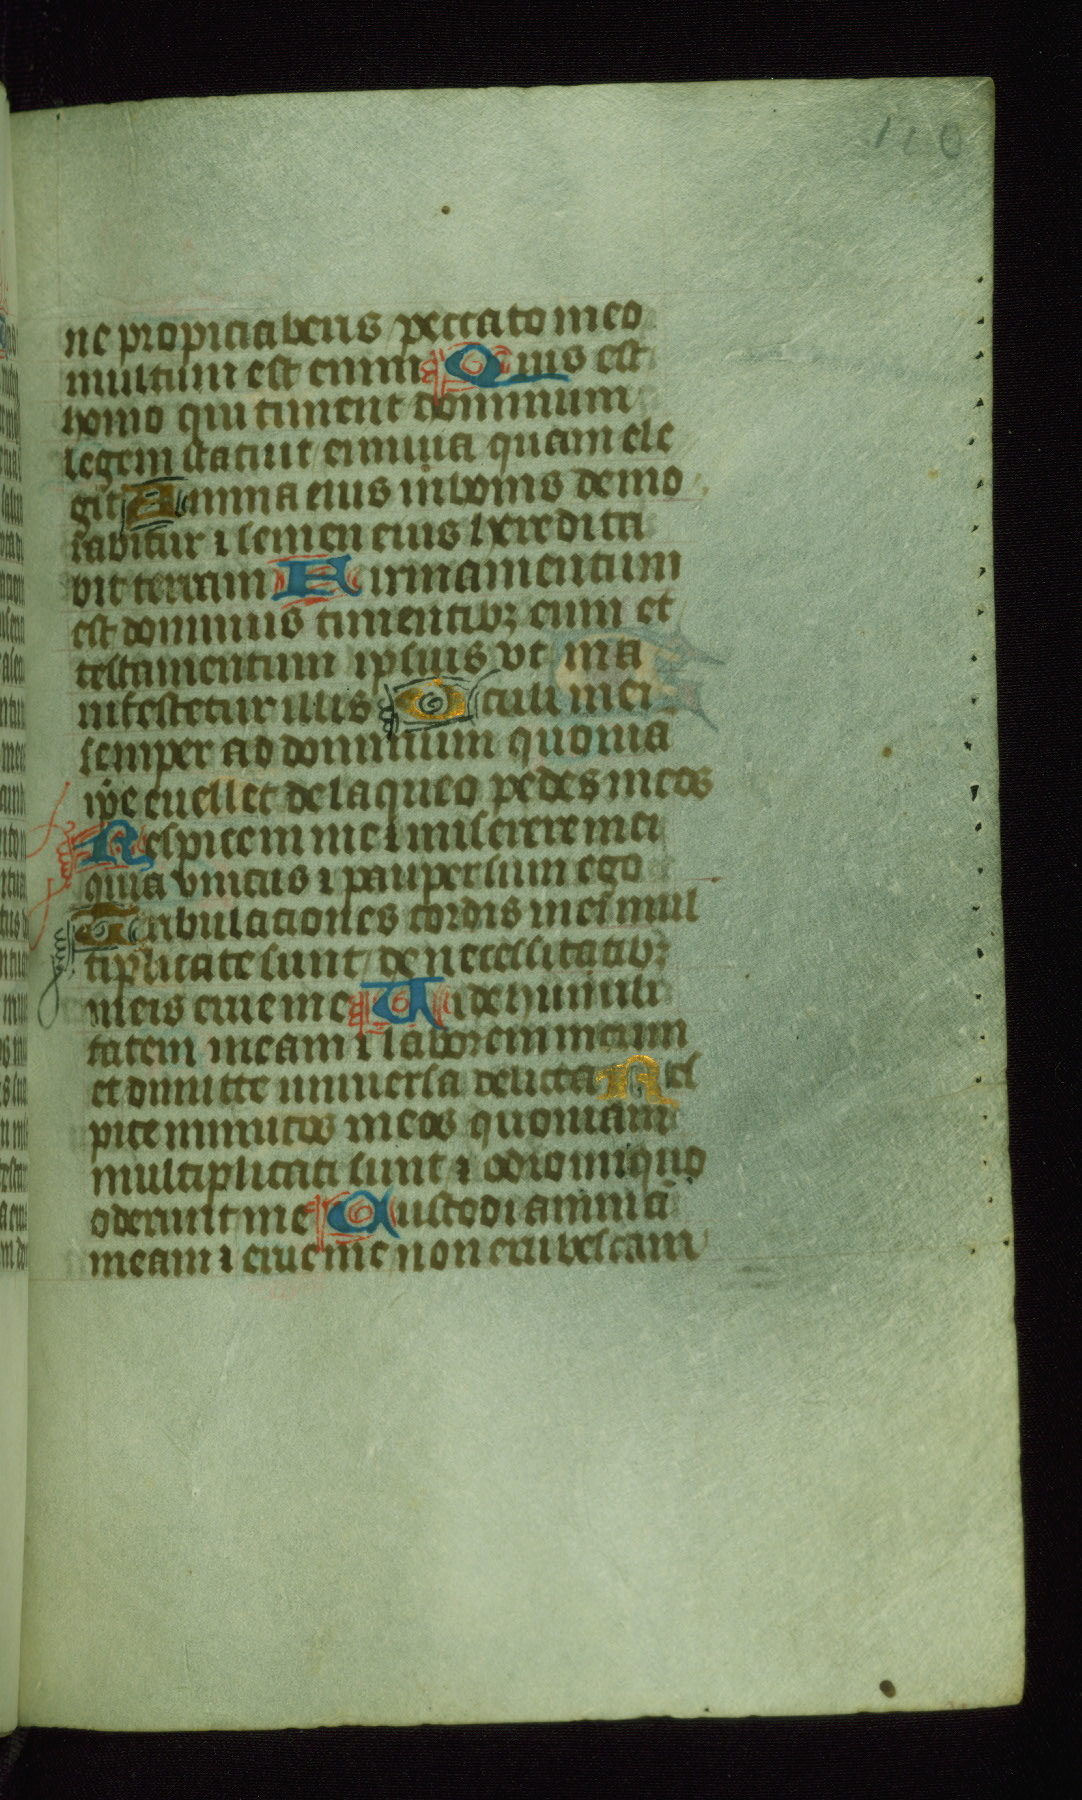 120
ne propiciaberis peccato meo
multum est enim Quis est
homo qui timent dominum
legem statuit ei in uia quam ele
git Anima eius in bonis demo
rabitur ⁊ semen eius heredita
bit terram Firmamentum
est dominus timentibꝫ eum et
testamentum ipsius vt ma
nifestetur illis Oculi mei
semper ad dominum quonia
ip̄e euellet de laqueo pedes meos
Respice in me ⁊ miserere mei
quia vnicus ⁊ pauper sum ego
Tribulationes cordis mei mul
tiplicate sunt de necessitatibꝫ
meis erue me Vide humili
tatem meam ⁊ laborem meum
et dimitte uniuersa delicta Res
pice inimicos meos quoniam
multiplicati sunt ⁊ odio iniquo
oderunt me Custodi animā
meam ⁊ erue me non erubescam